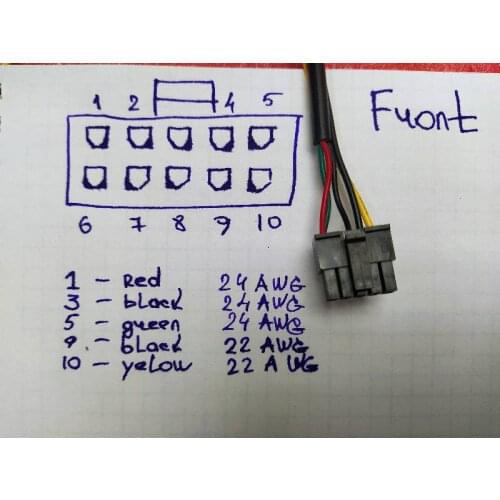 Fuont
1 2 4 5
6 7 8 9 10
1 - Red 24 AWG
3 - black 24 AWG
5 - gueen 24 AWG
9 - black 22 AWG
10 - yelow 22 AWG